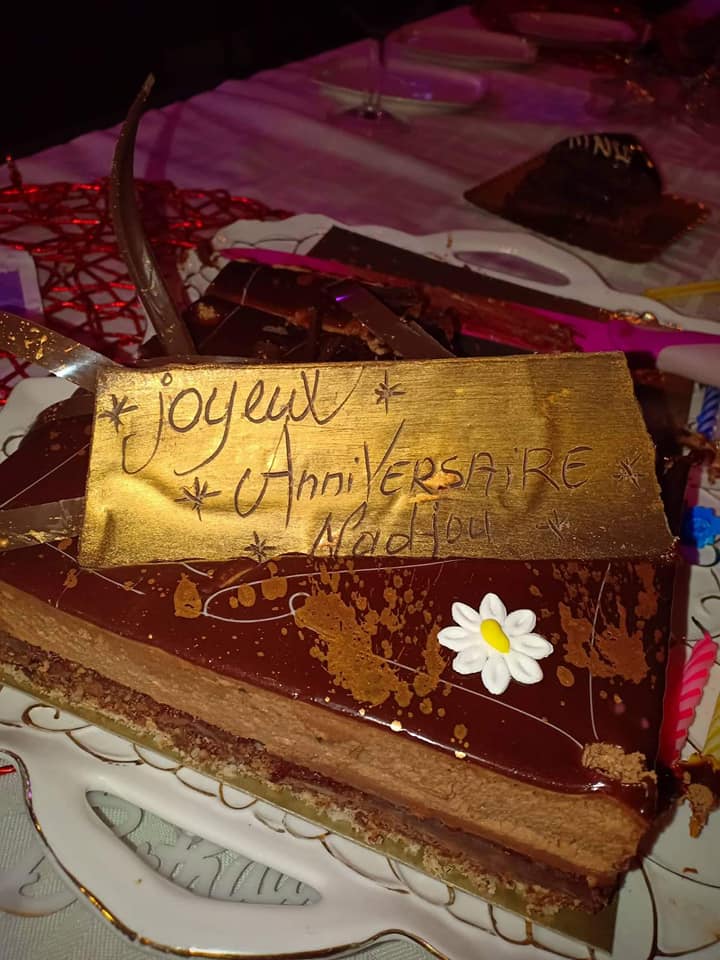 joyeux
AnniVERSAiRE
Nadjou